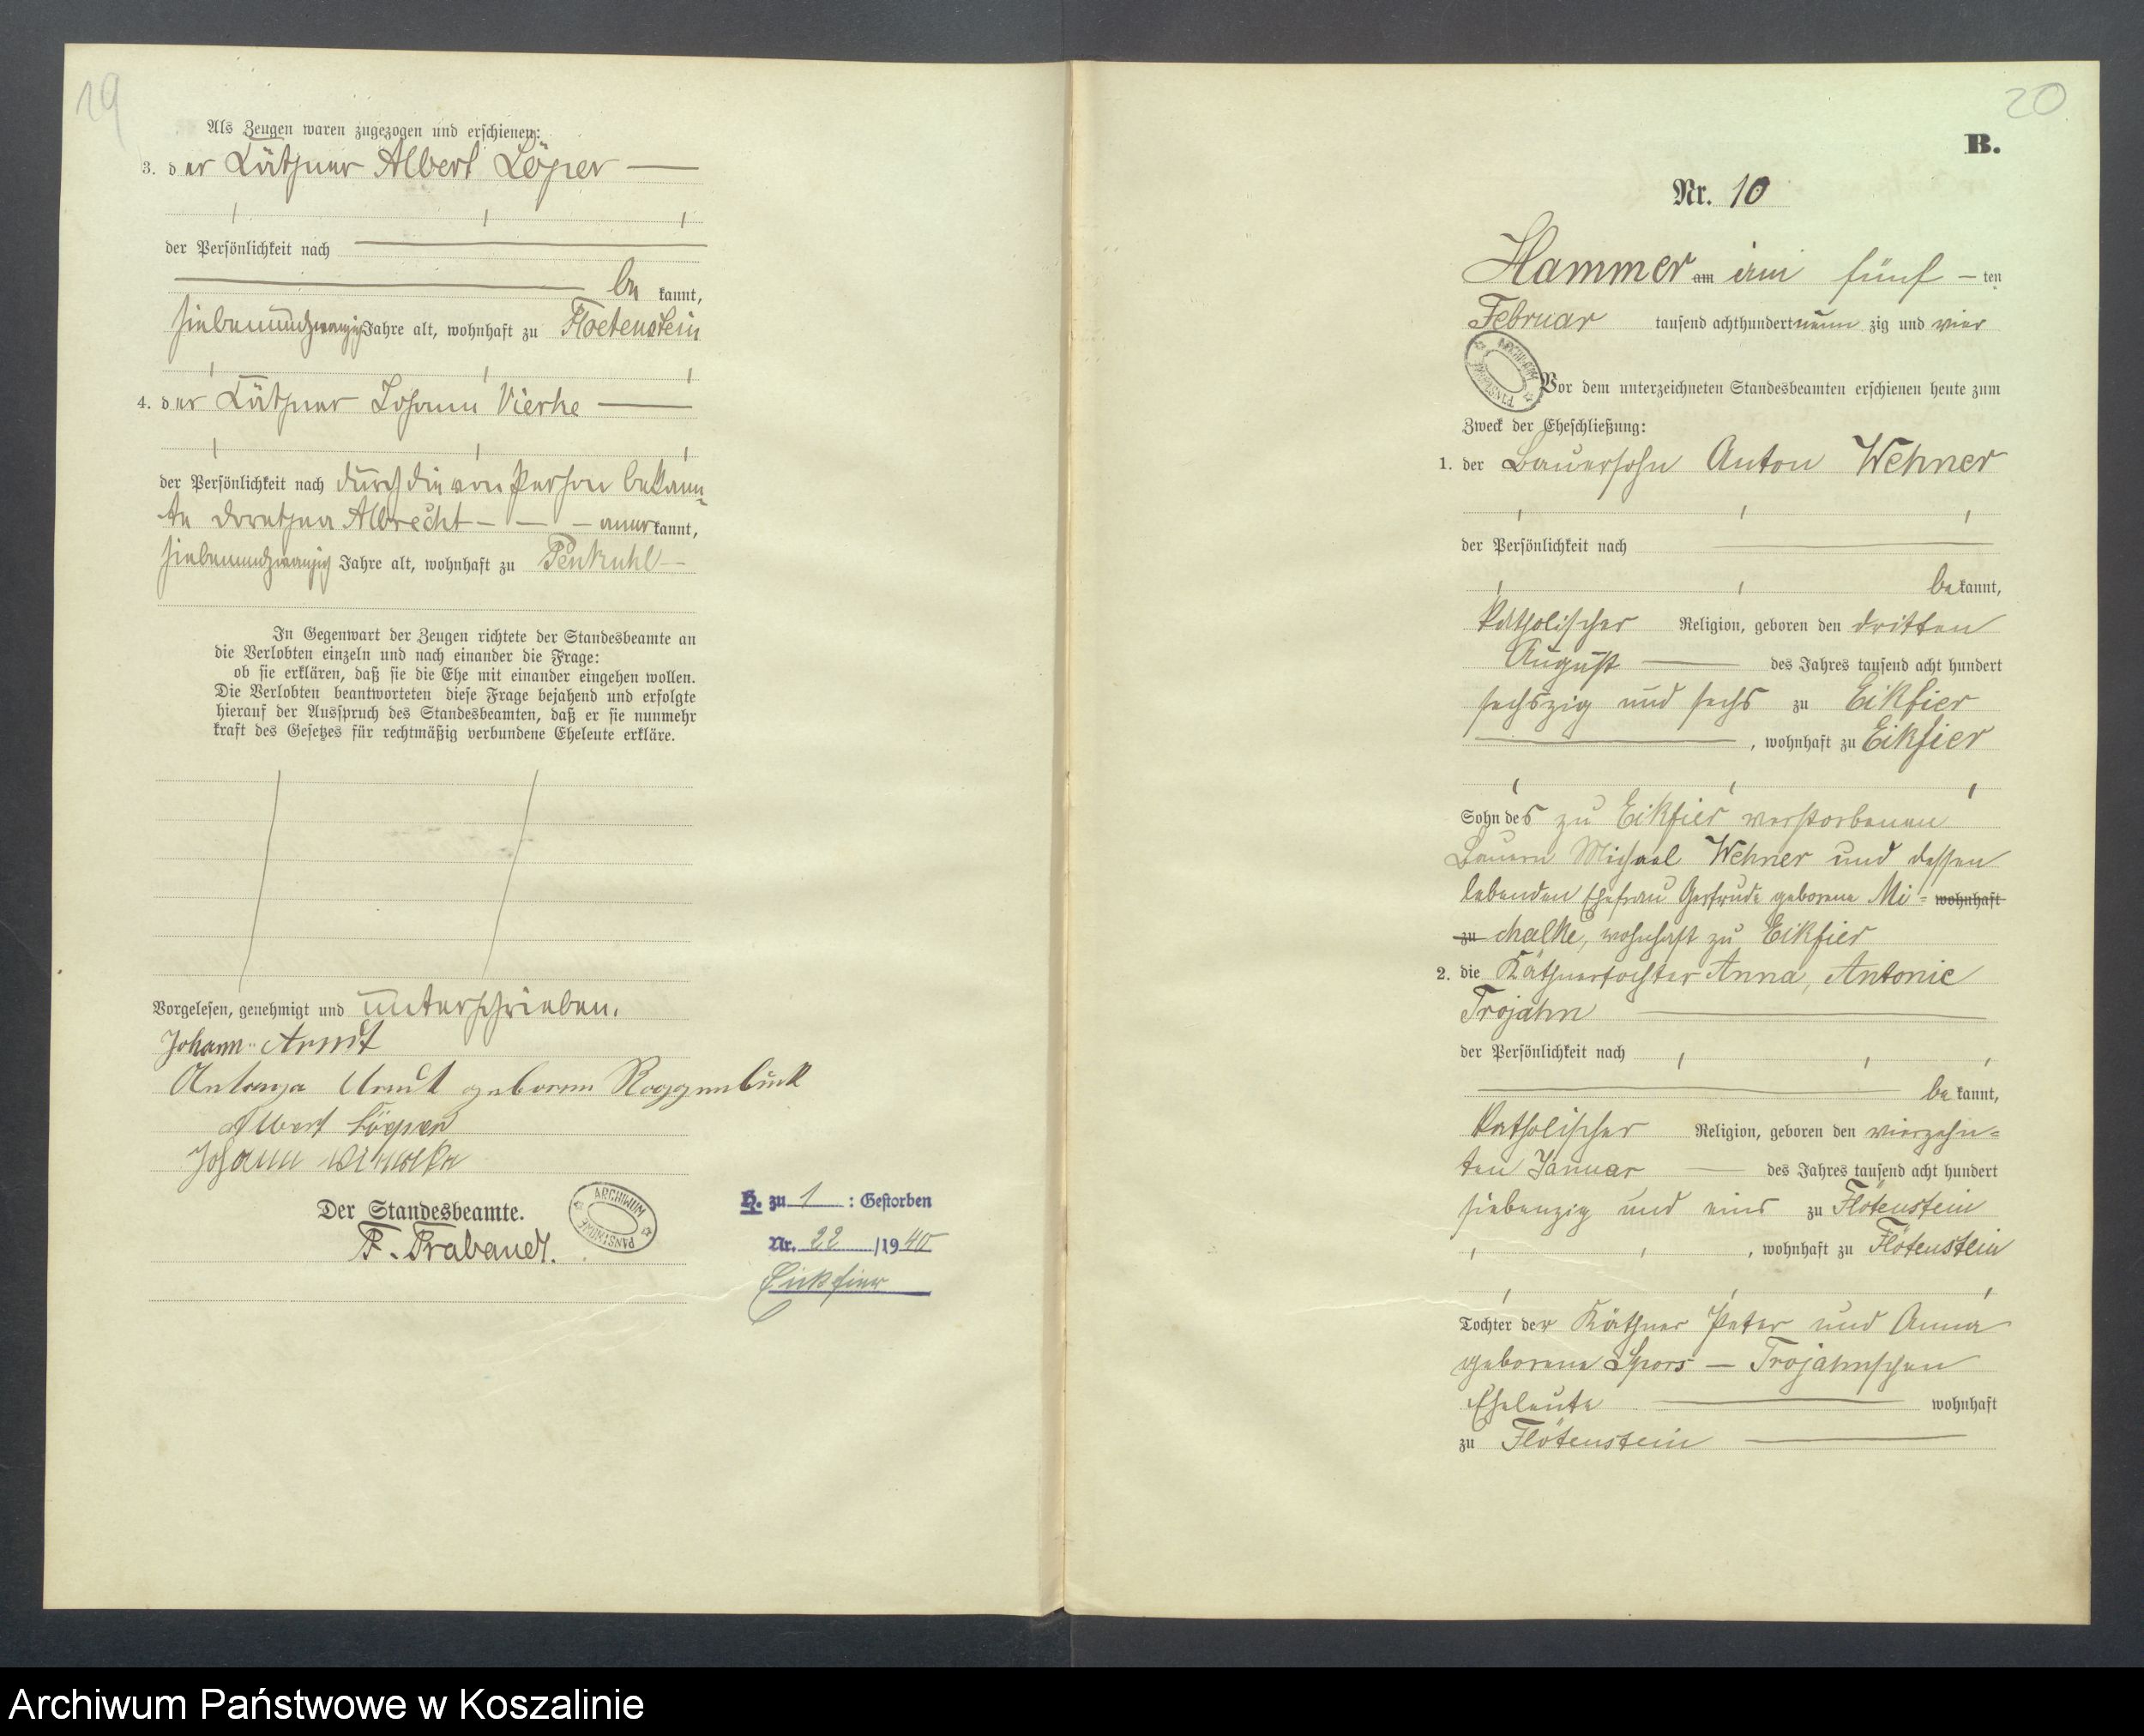 19
Als Zeugen waren zugezogen und erschienen:
3. der Käthner Albert Löper
der Persönlichkeit nach
be kannt,
siebenundzwanzig Jahre alt, wohnhaft zu Floetenstein
4. der Käthner Johann Vierke
der Persönlichkeit nach durch die von Person bekann-
te Dorothea Albrecht - - - anerkannt,
siebenundzwanzig Jahre alt, wohnhaft zu Penkuhl
In Gegenwart der Zeugen richtete der Standesbeamte an
die Verlobten einzeln und nach einander die Frage:
ob sie erklären, daß sie die Ehe mit einander eingehen wollen.
Die Verlobten beantworteten diese Frage bejahend und erfolgte
hierauf der Ausspruch des Standesbeamten, daß er sie nunmehr
kraft des Gesetzes für rechtmäßig verbundene Eheleute erkläre.
Vorgelesen, genehmigt und unterschrieben.
Johann Arndt
Arndt geborene Roggenbuck
Albert Löper
Johann
Der Standesbeamte.
ARCHIWUM PAŃSTWOWE
H. zu 1 : Gestorben
Nr. 22 /1940
Eickfier
20
B.
Nr. 10
Hammer am am fünf - ten
Februar tausend achthundert neun zig und vier
ARCHIWUM PAŃSTWOWE
Vor dem unterzeichneten Standesbeamten erschienen heute zum
Zweck der Eheschließung:
1. der Bauersohn Anton Wehner
der Persönlichkeit nach
be kannt,
katholischer Religion, geboren den dritten
August des Jahres tausend acht hundert
sechszig und sechs zu Eikfier
, wohnhaft zu Eikfier
Sohn des zu Eikfier verstorbenen
Bauern Michael Wehner und dessen
lebenden Ehefrau Gertrude geborene Mi- wohnhaft
zu chalke, wohnhaft zu Eikfier
2. die Käthnertochter Anna, Antonie
Trojahn
der Persönlichkeit nach
be kannt,
katholischer Religion, geboren den vierzehn-
ten Januar des Jahres tausend acht hundert
siebenzig und eins zu Flötenstein
, wohnhaft zu Flötenstein
Tochter der Käthner Peter und Anna
geborene Spors - Trojahnschen
Eheleute wohnhaft
zu Flötenstein
Archiwum Państwowe w Koszalinie